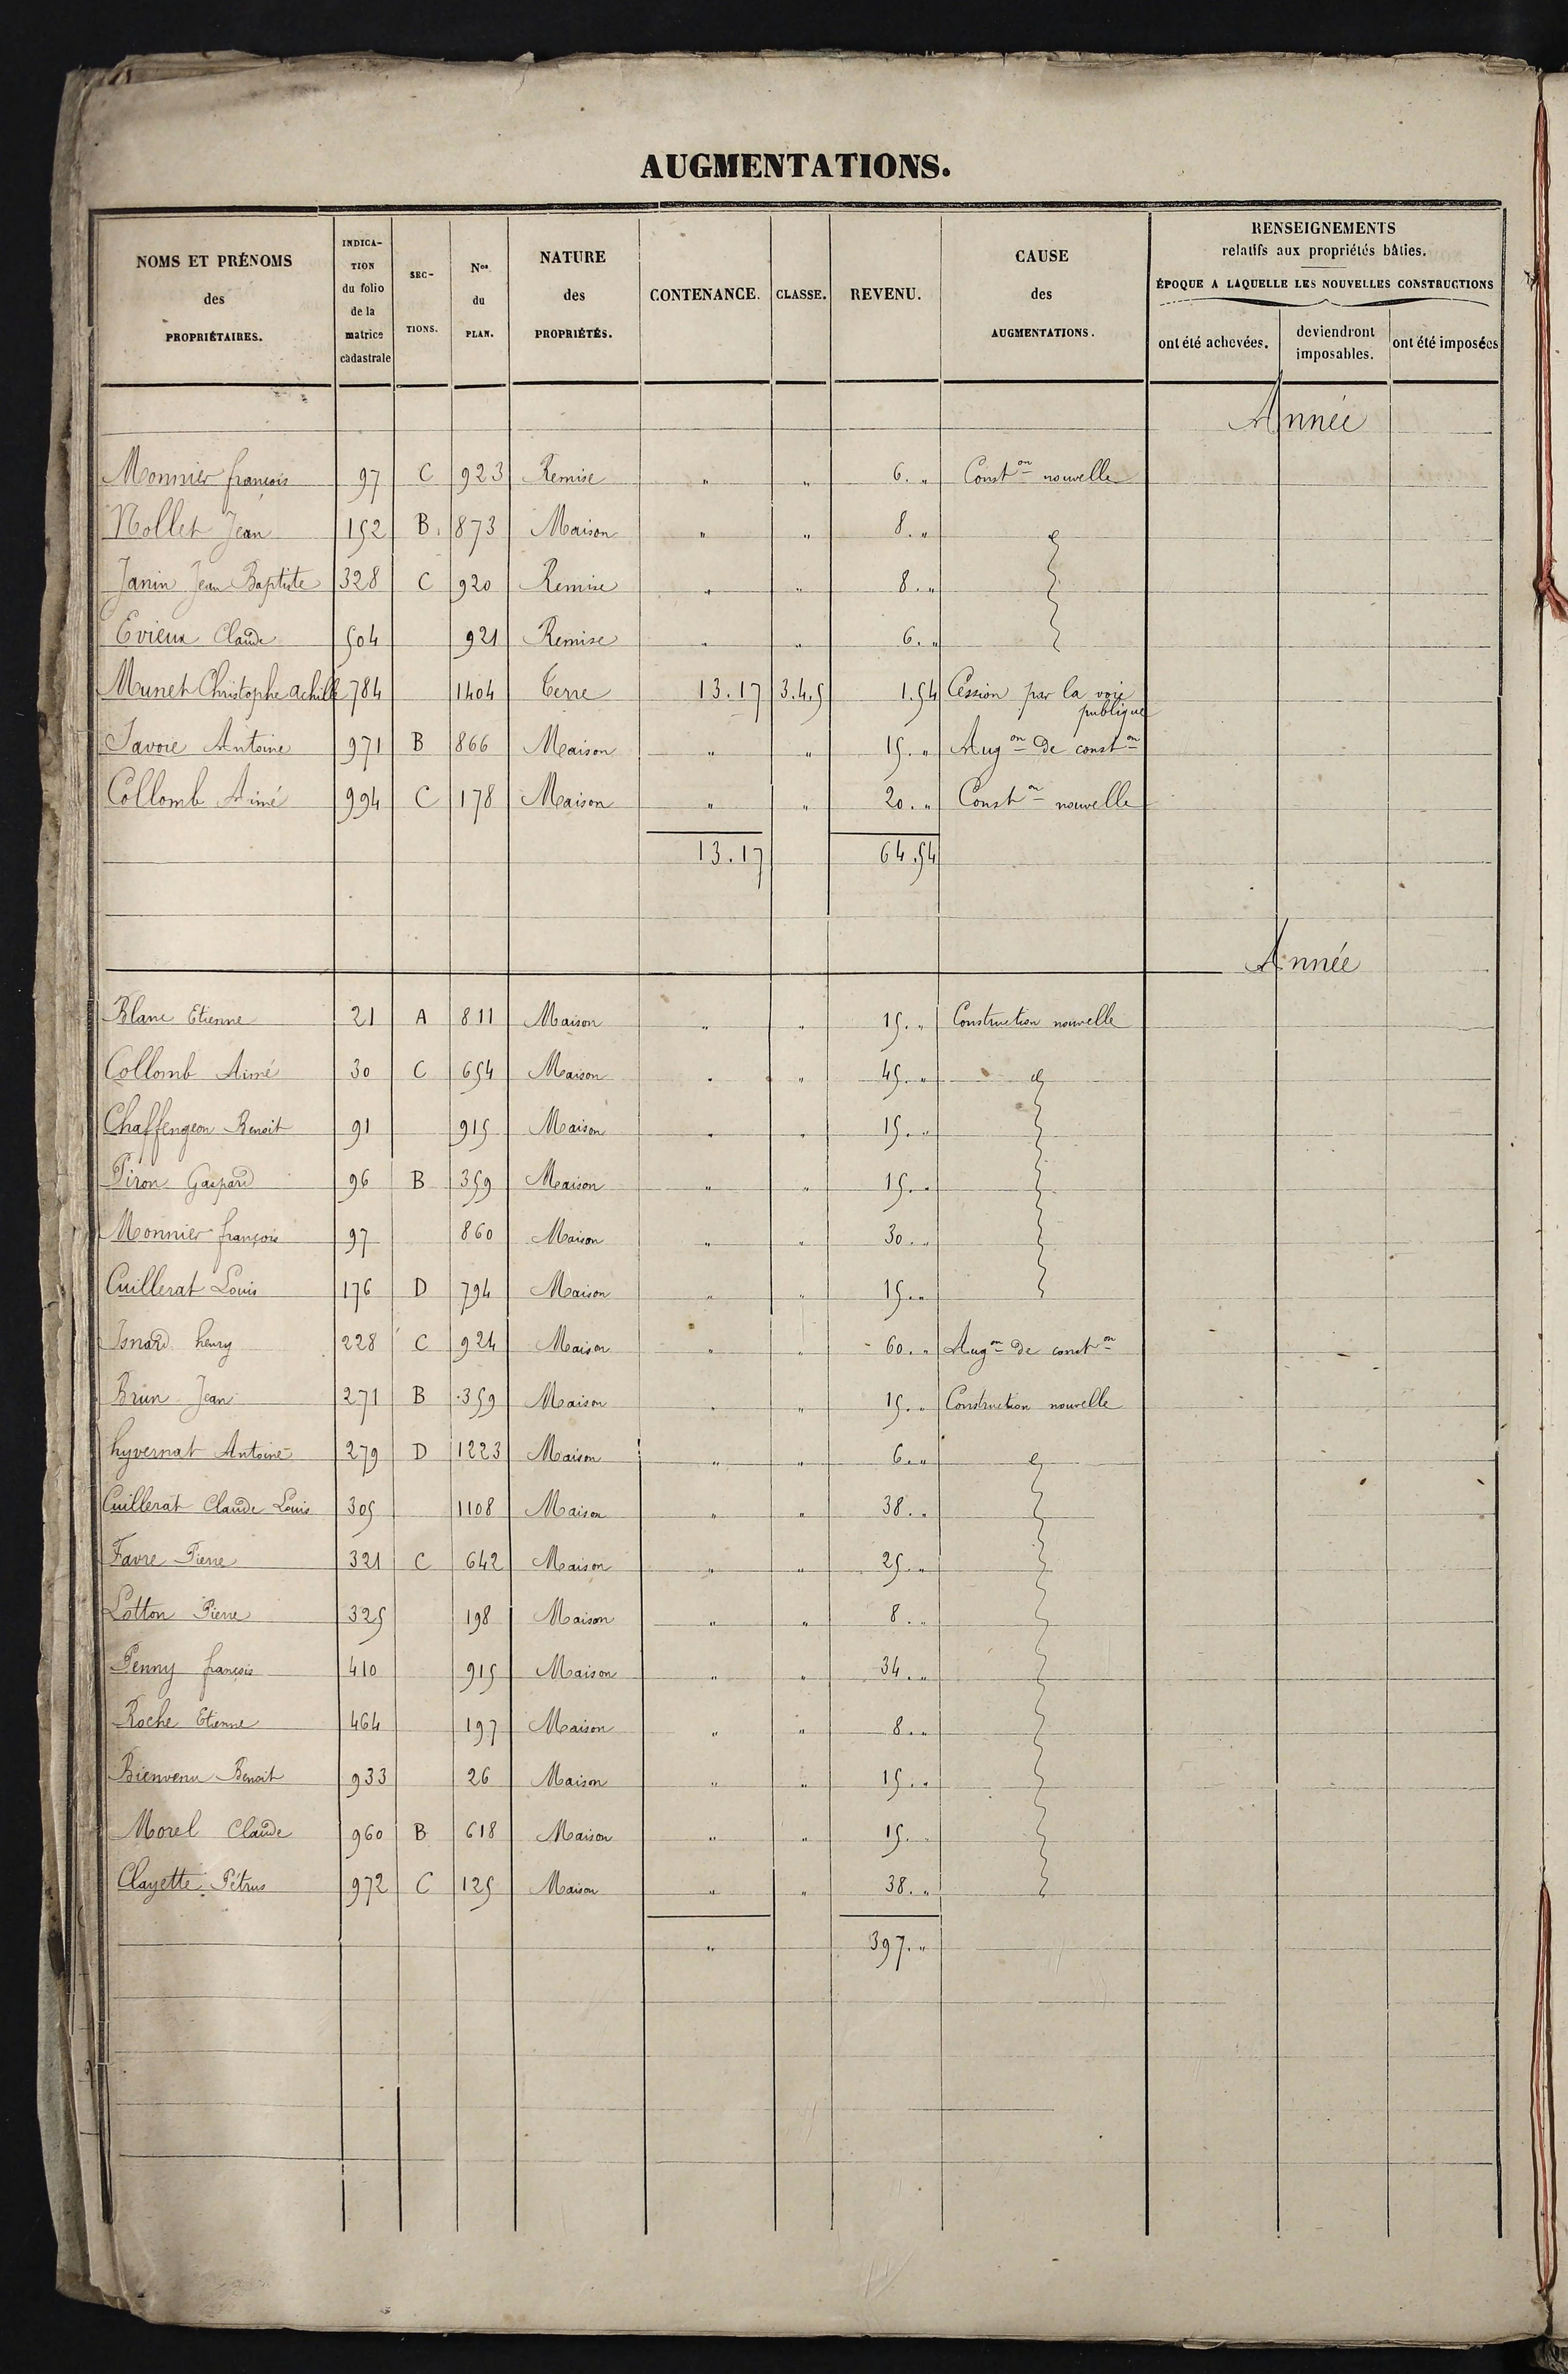 AUGMENTATIONS.
NOMS ET PRÉNOMS des PROPRIÉTAIRES.
INDICA-TION du folio de la matrice cadastrale
SEC-TIONS.
Nos du PLAN.
NATURE des PROPRIÉTÉS.
CONTENANCE.
CLASSE.
REVENU.
CAUSE des AUGMENTATIONS.
RENSEIGNEMENTS
relatifs aux propriétés bâties.
ÉPOQUE A LAQUELLE LES NOUVELLES CONSTRUCTIONS
ont été achevées.
deviendront imposables.
ont été imposées
Année
Monnier françois 97 C 923 Remise " " 6. " Conston nouvelle
Nollet Jean 152 B. 873 Maison " " 8. "
Janin Jean Baptiste 328 C 920 Remise " " 8. "
Evieux Claude 504 921 Remise " " 6. "
Munet Christophe achille 784 1404 Terre 13.17 3.4.5 1.54 Cession par la voie
publique
Savoie Antoine 971 B 866 Maison " " 15. " Augon de conston
Collomb Aimé 994 C 178 Maison " " 20. " Conston nouvelle
13.17 64.54
Année
Blanc Etienne 21 A 811 Maison " " 15. " Construction nouvelle
Collomb Aimé 30 C 654 Maison " " 45. "
Chaffengeon Benoit 91 915 Maison " " 15. "
Piron Gaspard 96 B 359 Maison " " 15. "
Monnier françois 97 860 Maison " " 30. "
Cuillerat Louis 176 D 794 Maison " " 15. "
Isnard henry 228 C 924 Maison " " 60. " Augon de conston
Brun Jean 271 B 359 Maison " " 15. " Construction nouvelle
hyvernat Antoine 279 D 1223 Maison " " 6. "
Cuillerat Claude Louis 305 1108 Maison " " 38. "
Favre Pierre 321 C 642 Maison " " 25. "
Lotton Pierre 325 198 Maison " " 8. "
Penny françois 410 915 Maison " " 34. "
Roche Etienne 464 197 Maison " " 8. "
Bienvenu Benoit 933 26 Maison " " 15. "
Morel Claude 960 B 618 Maison " " 15. "
Clayette Pétrus 972 C 125 Maison " " 38. "
" 397. "